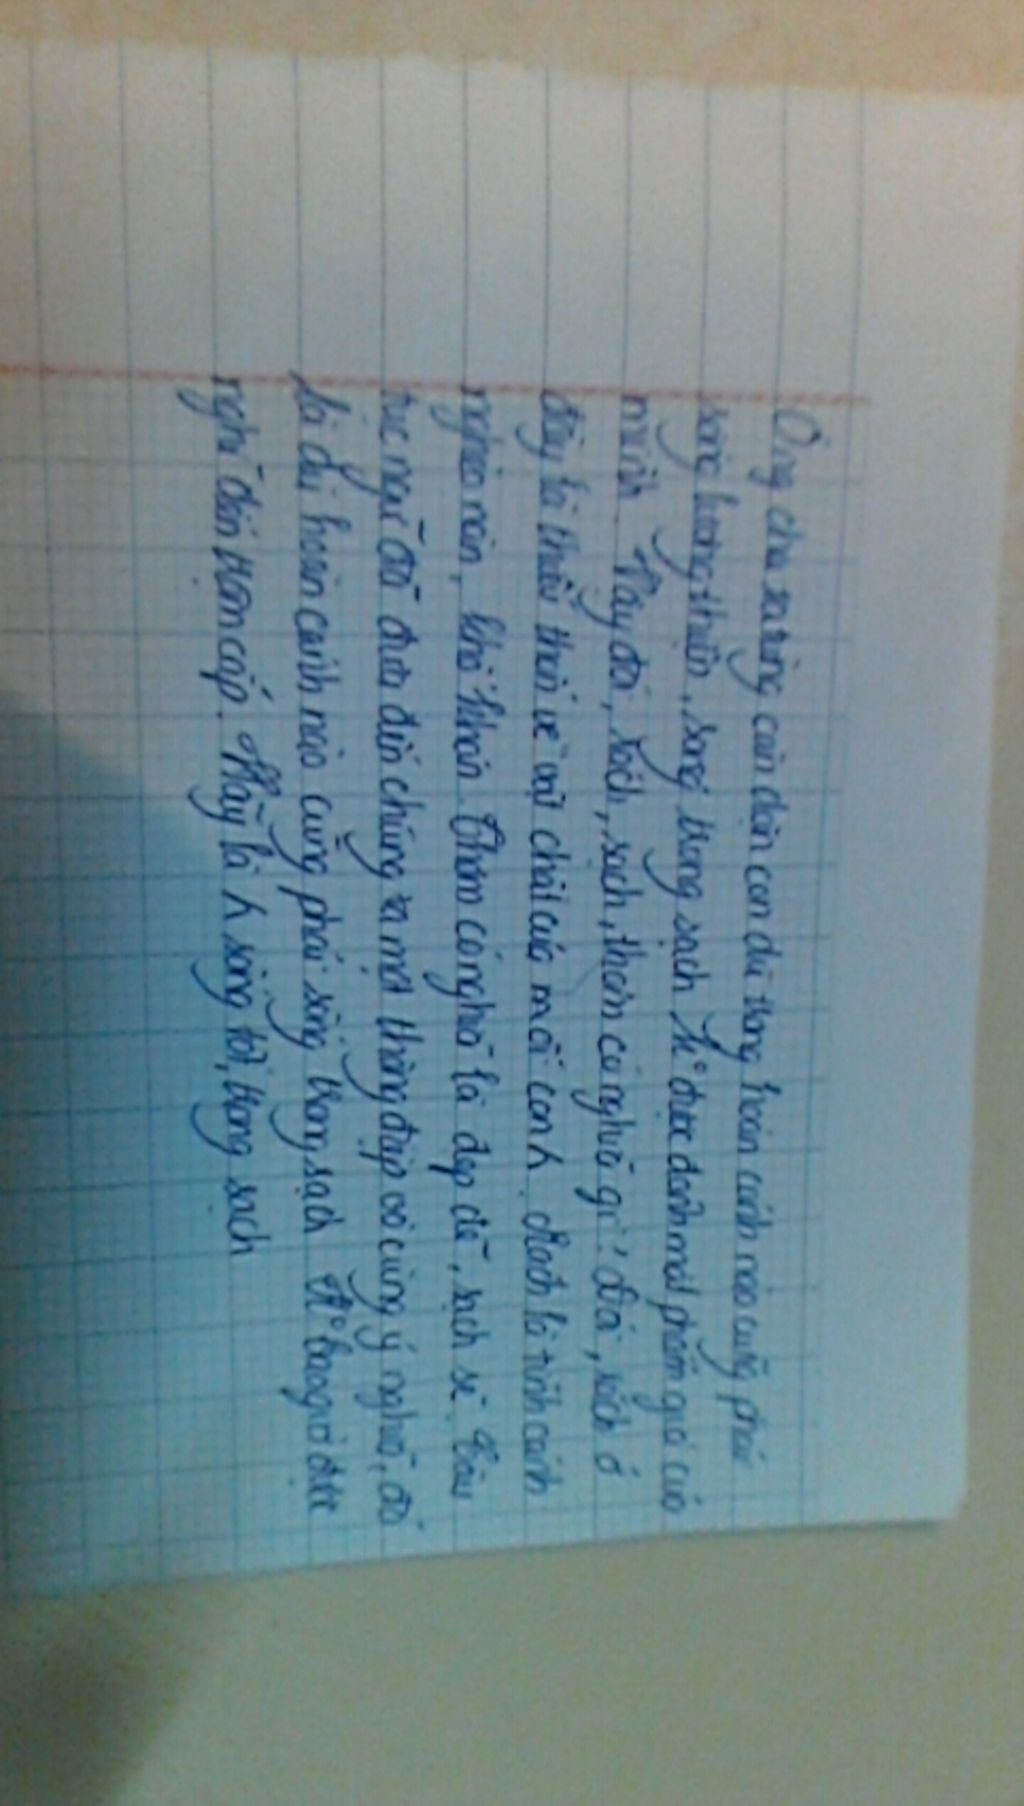 Ông cha ta từng căn dặn con dù trong hoàn cảnh nào cũng phải
sống lương thiện, sống trong sạch k° được đánh mất phẩm giá của
mình. Vậy đói, rách, sạch, thơm có nghĩa gì? Đói, rách ở
đây là thiếu thốn về vật chất của mỗi con ng. Rách là tình cảnh
nghèo nàn, khó khăn. Thơm có nghĩa là đẹp đẽ, sạch sẽ. Câu
tục ngữ đã đưa đến chúng ta một thông điệp vô cùng ý nghĩa, đó
là dù hoàn cảnh nào cũng phải sống trong sạch k° bao giờ được
nghĩ đến trộm cắp. Hãy là sống tốt, trong sạch